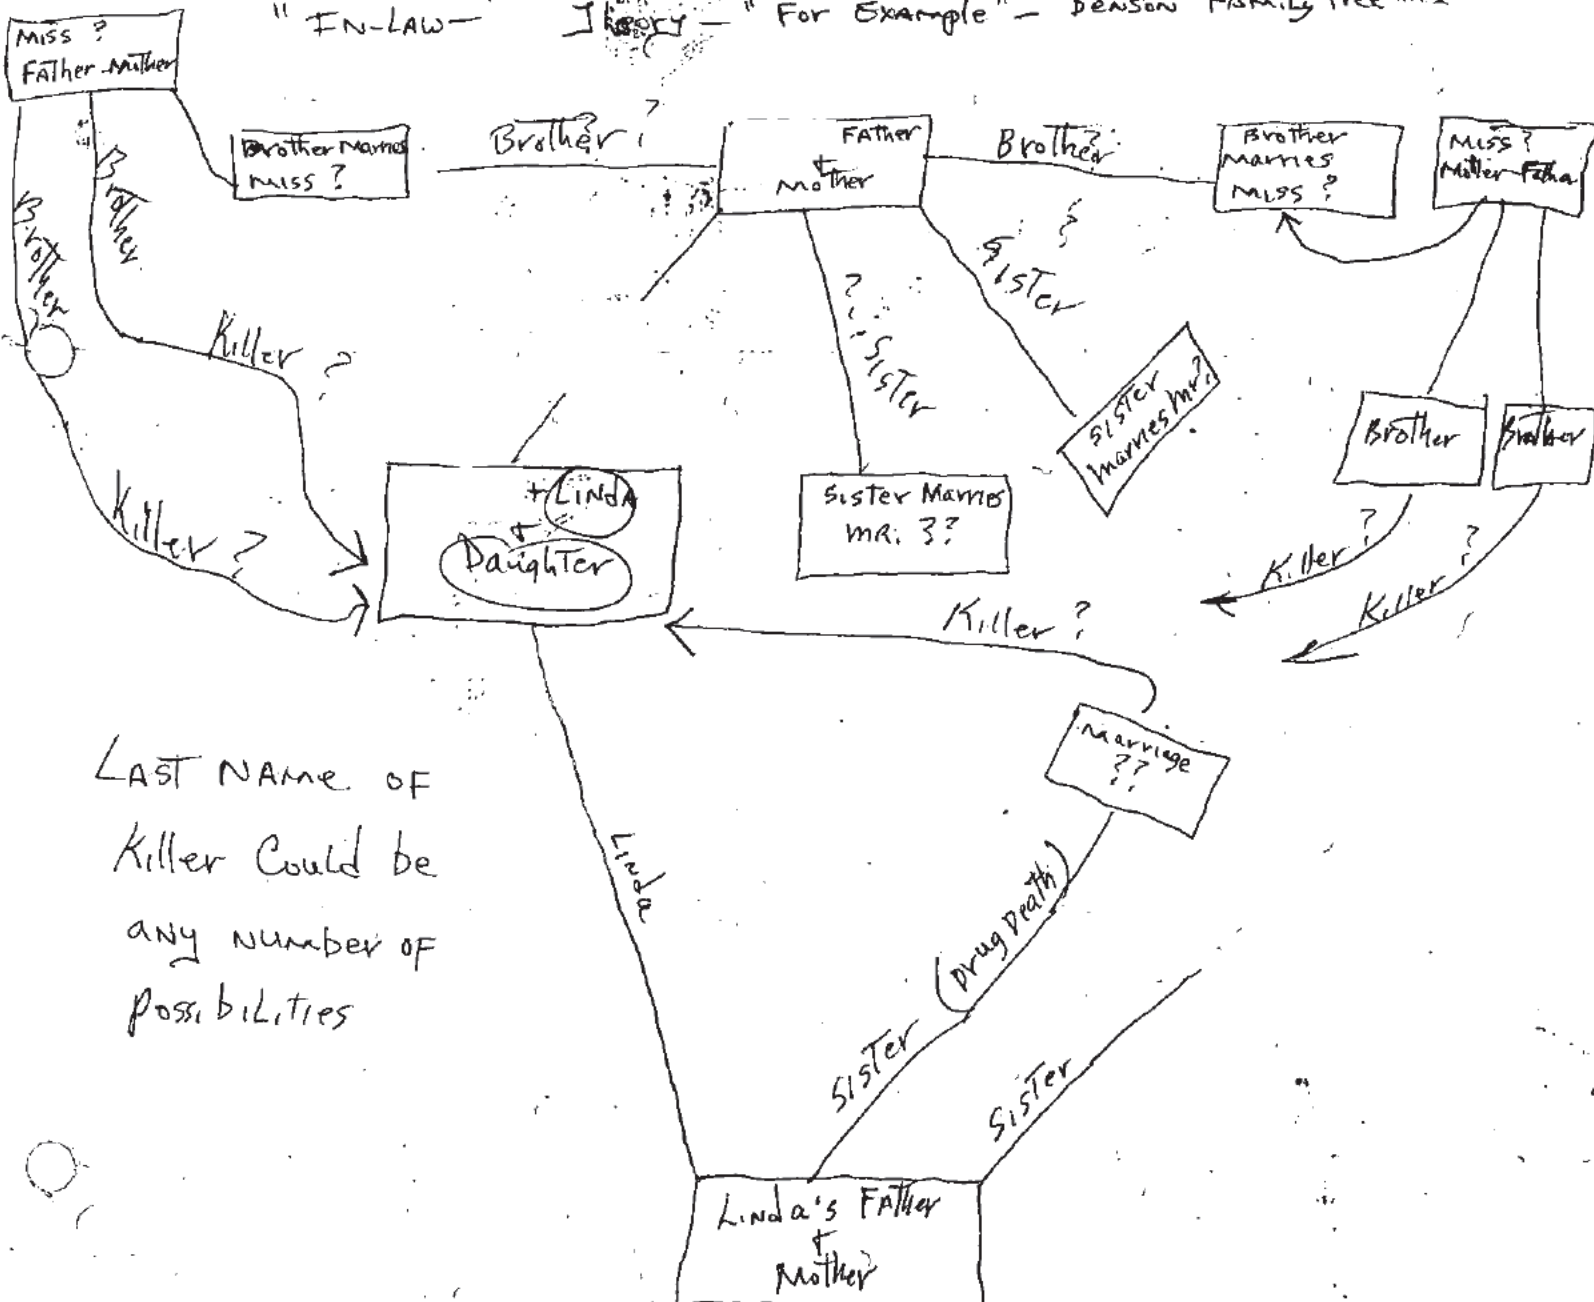 "IN-LAW- Theory - "For Example" - Denson Family Tree
Miss ?
Father-Mother
Brother Marries
Miss ?
Brother ?
Father
+
Mother
Brother ?
Brother
Marries
Miss ?
Miss ?
Mother-Father
Brother ?
Brother
Killer ?
Killer ?
? Sister
? Sister
Sister
Marries Mr. ?
Sister Marries
MR. ??
Brother
Brother
Killer ?
Killer ?
+ LINDA
+
Daughter
Killer ?
Marriage
??
LAST NAME OF
Killer Could be
any number of
possibilities
Linda
Sister (Drug Death)
Sister
Linda's Father
+
Mother